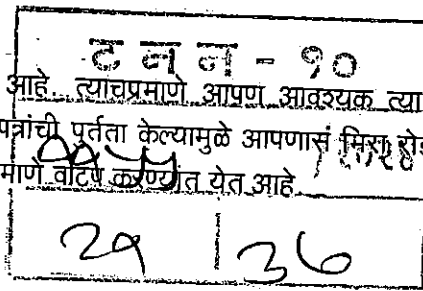 ट न न - १०
आहे. त्याचप्रमाणे आपण आवश्यक त्या
पत्रांची पुर्तता केल्यामुळे आपणासं मिरा रोड
माणे वाटप करण्यात येत आहे
२१ | ३६